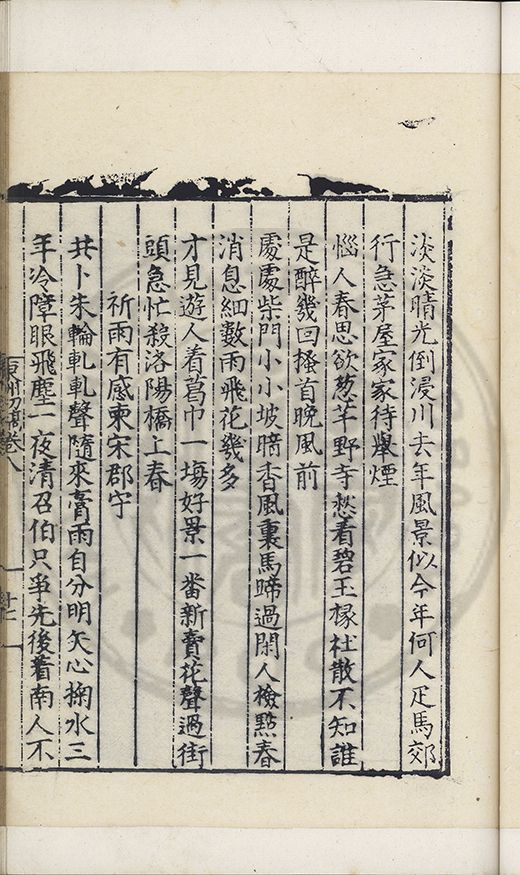 淡淡晴光倒浸川去年風景似今年何人疋馬郊
行急茅屋家家待擧煙
惱人春思欲葱芊野寺愁看碧玉椽社散不知誰
是醉幾回搔首晚風前
處處柴門小小坡暗香風裏馬蹄過閑人檢點春
消息細數雨飛花幾多
才見遊人着葛巾一塲好景一番新賣花聲過街
頭急忙殺洛陽橋上春
祈雨有感柬宋郡守
共卜朱輪軋軋聲隨來膏雨自分明矢心掬水三
年冷障眼飛塵一夜清召伯只爭先後着南人不
卷八